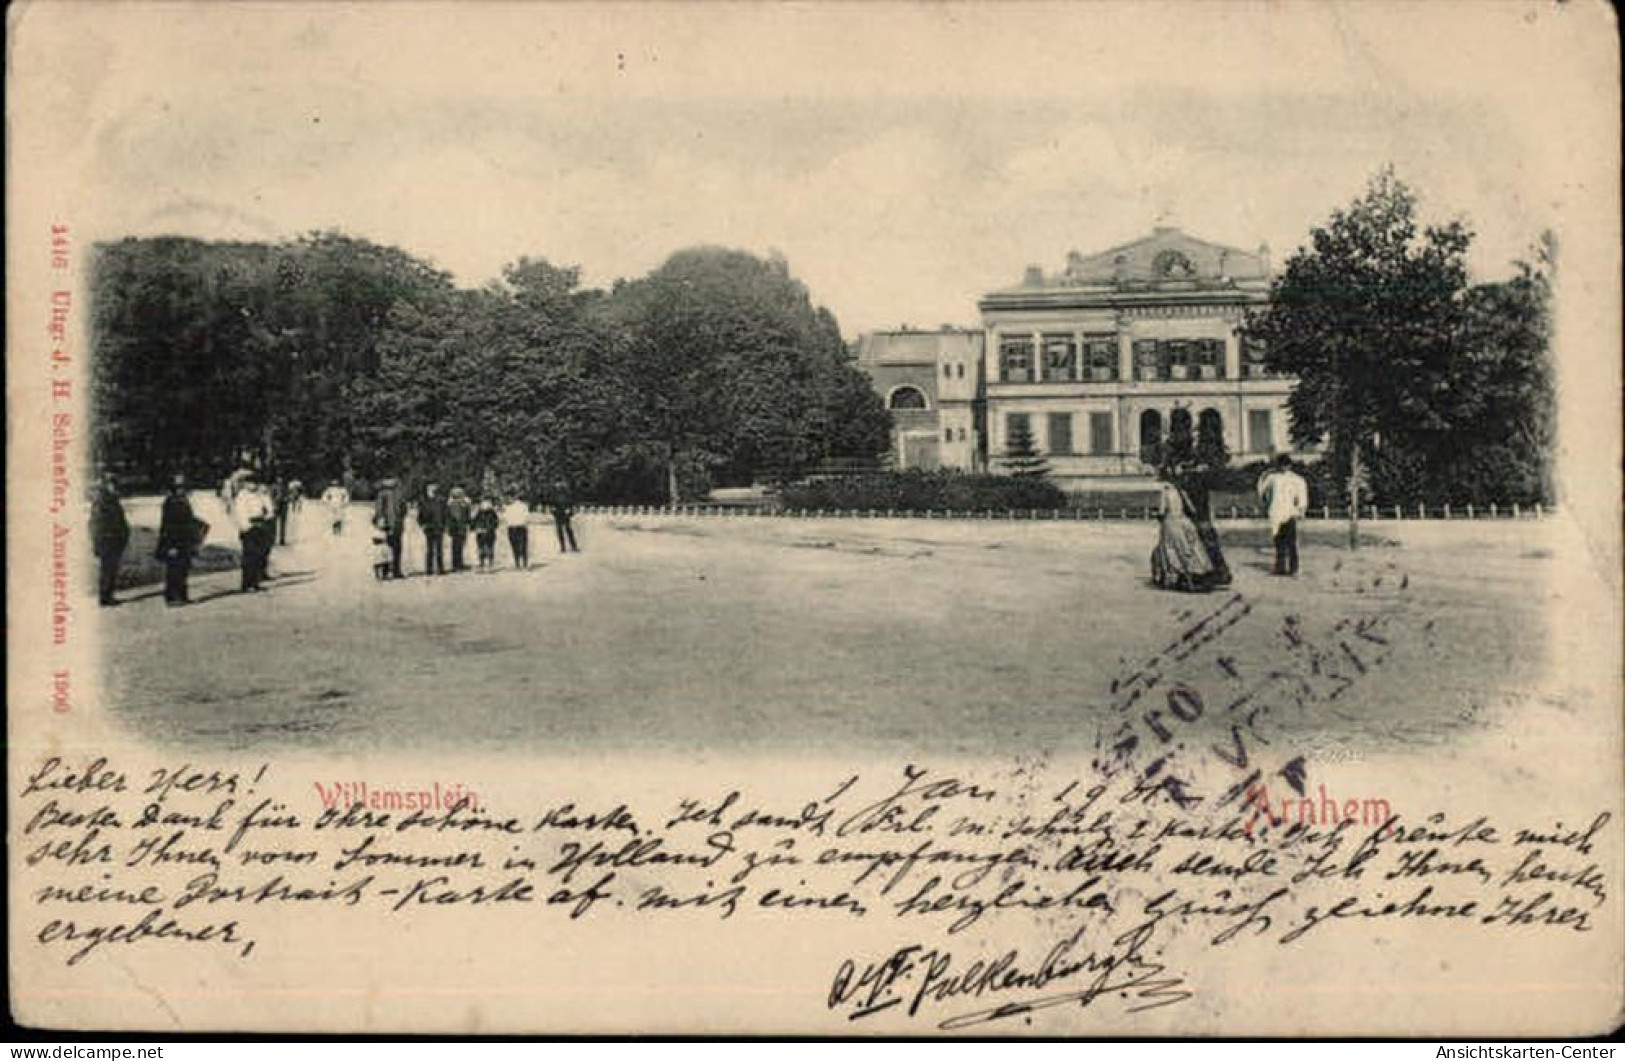 1416 Uitg: J. H. Schaefer, Amsterdam 1900
Willemsplein
Arnhem
Lieber Herr! 1 Jan 1901.
Besten Dank für Ihre schöne Karten. Ich sandt Frl. M. Schülz 2 Karten. Ich freute mich
sehr Ihnen vom Sommer in Holland zu empfangen. Auch sende Ich Ihnen heuten
meine Portrait-Karte af. mit einen herzlichen Grüsz zeichne Ihrer
ergebener,
Ansichtskarten-Center